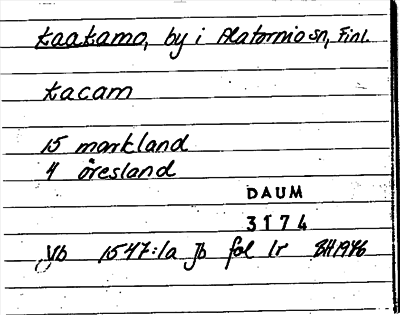 Kaakamo, by i Alatornio sn, Finl.
Kacam
15 markland
4 öresland
DAUM
3174
Jb 1547:1a Jb fol 1r BH1946